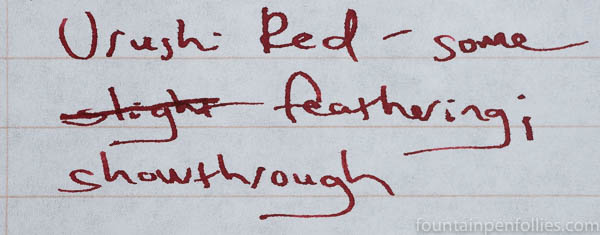 Urushi Red - some
slight feathering;
showthrough
fountainpenfollies.com